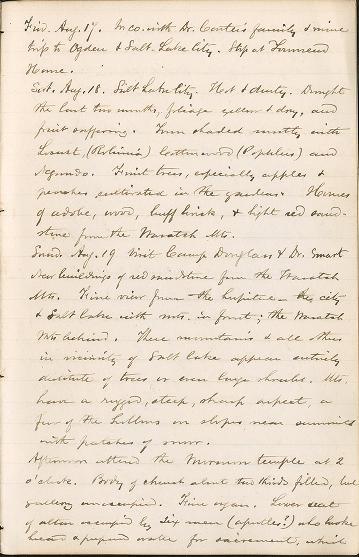 Fri. Aug. 17. In co. with Dr. Canter's family & mine
trip to Ogden & Salt-Lake City. Stop at Townsend
House.
Sat. Aug. 18. Salt Lake City. Hot & dusty. Drought
the last two months, foliage yellow & dry, and
fruit suffering. Town shaded mostly with
Locust, (Robinia) Cottonwood (Populus) and
Negundo. Fruit trees, especially apples &
peaches cultivated in the gardens. Houses
of adobe, wood, buff brick, & light red sand-
stone from the Wasatch Mts.
Sund. Aug. 19 Visit Camp Douglass & Dr. Smart
New buildings of red sandstone from the Wasatch
Mts. Fine view from the hospital – the city
& Salt Lake with mts. in front; the Wasatch
Mts behind. These mountains & all others
in vicinity of Salt Lake appear entirely
destitute of trees or even large shrubs. Mts.
have a rugged, steep, sharp aspect, a
few of the hollows on slopes near summit
with patches of snow.
Afternoon attend the Mormon temple at 2
o'clock. Body of church about two thirds filled, but
gallery unoccupied. Fine organ. Lower seat
of altar occupied by six men (apostles?) who broke
bread & prepared water for sacrament, which